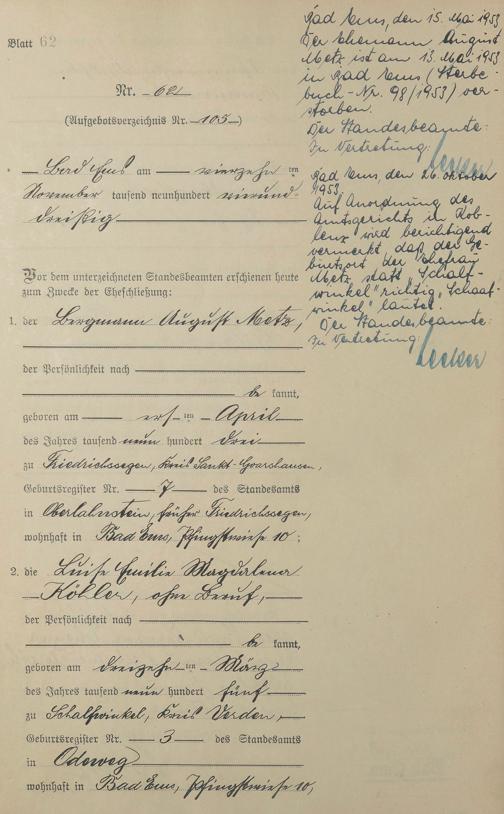 Blatt 62
Nr. 62
(Aufgebotsverzeichnis Nr. 105)
Bad Ems am vierzehnten
November tausend neunhundert vierund-
dreißig
Vor dem unterzeichneten Standesbeamten erschienen heute
zum Zwecke der Eheschließung:
1. der Bergmann August Metz,
der Persönlichkeit nach
be kannt,
geboren am ersten April
des Jahres tausend neun hundert drei
zu Friedrichssegen, Kreis Sankt-Goarshausen,
Geburtsregister Nr. 7 des Standesamts
in Oberlahnstein, früher Friedrichssegen,
wohnhaft in Bad Ems, Pfingstwiese 10;
2. die Luise Emilie Magdalena
Köller, ohne Beruf,
der Persönlichkeit nach
be kannt,
geboren am dreizehnten März
des Jahres tausend neun hundert fünf
zu Schalfwinkel, Kreis Verden,
Geburtsregister Nr. 3 des Standesamts
in Odeweg
wohnhaft in Bad Ems, Pfingstwiese 10,
Bad Ems, den 15. Mai 1953
Der Ehemann August
Metz ist am 13. Mai 1953
in Bad Ems (Sterbe-
buch-Nr. 98/1953) ver-
storben.
Der Standesbeamte:
In Vertretung:
Bad Ems, den 26. Oktober
1953.
Auf Anordnung des
Amtsgerichts in Kob-
lenz wird berichtigend
vermerkt, daß der Ge-
burtsort der Ehefrau
Metz, statt „Schalf-
winkel" richtig „Schaaf-
winkel" lautet.
Der Standesbeamte:
In Vertretung: